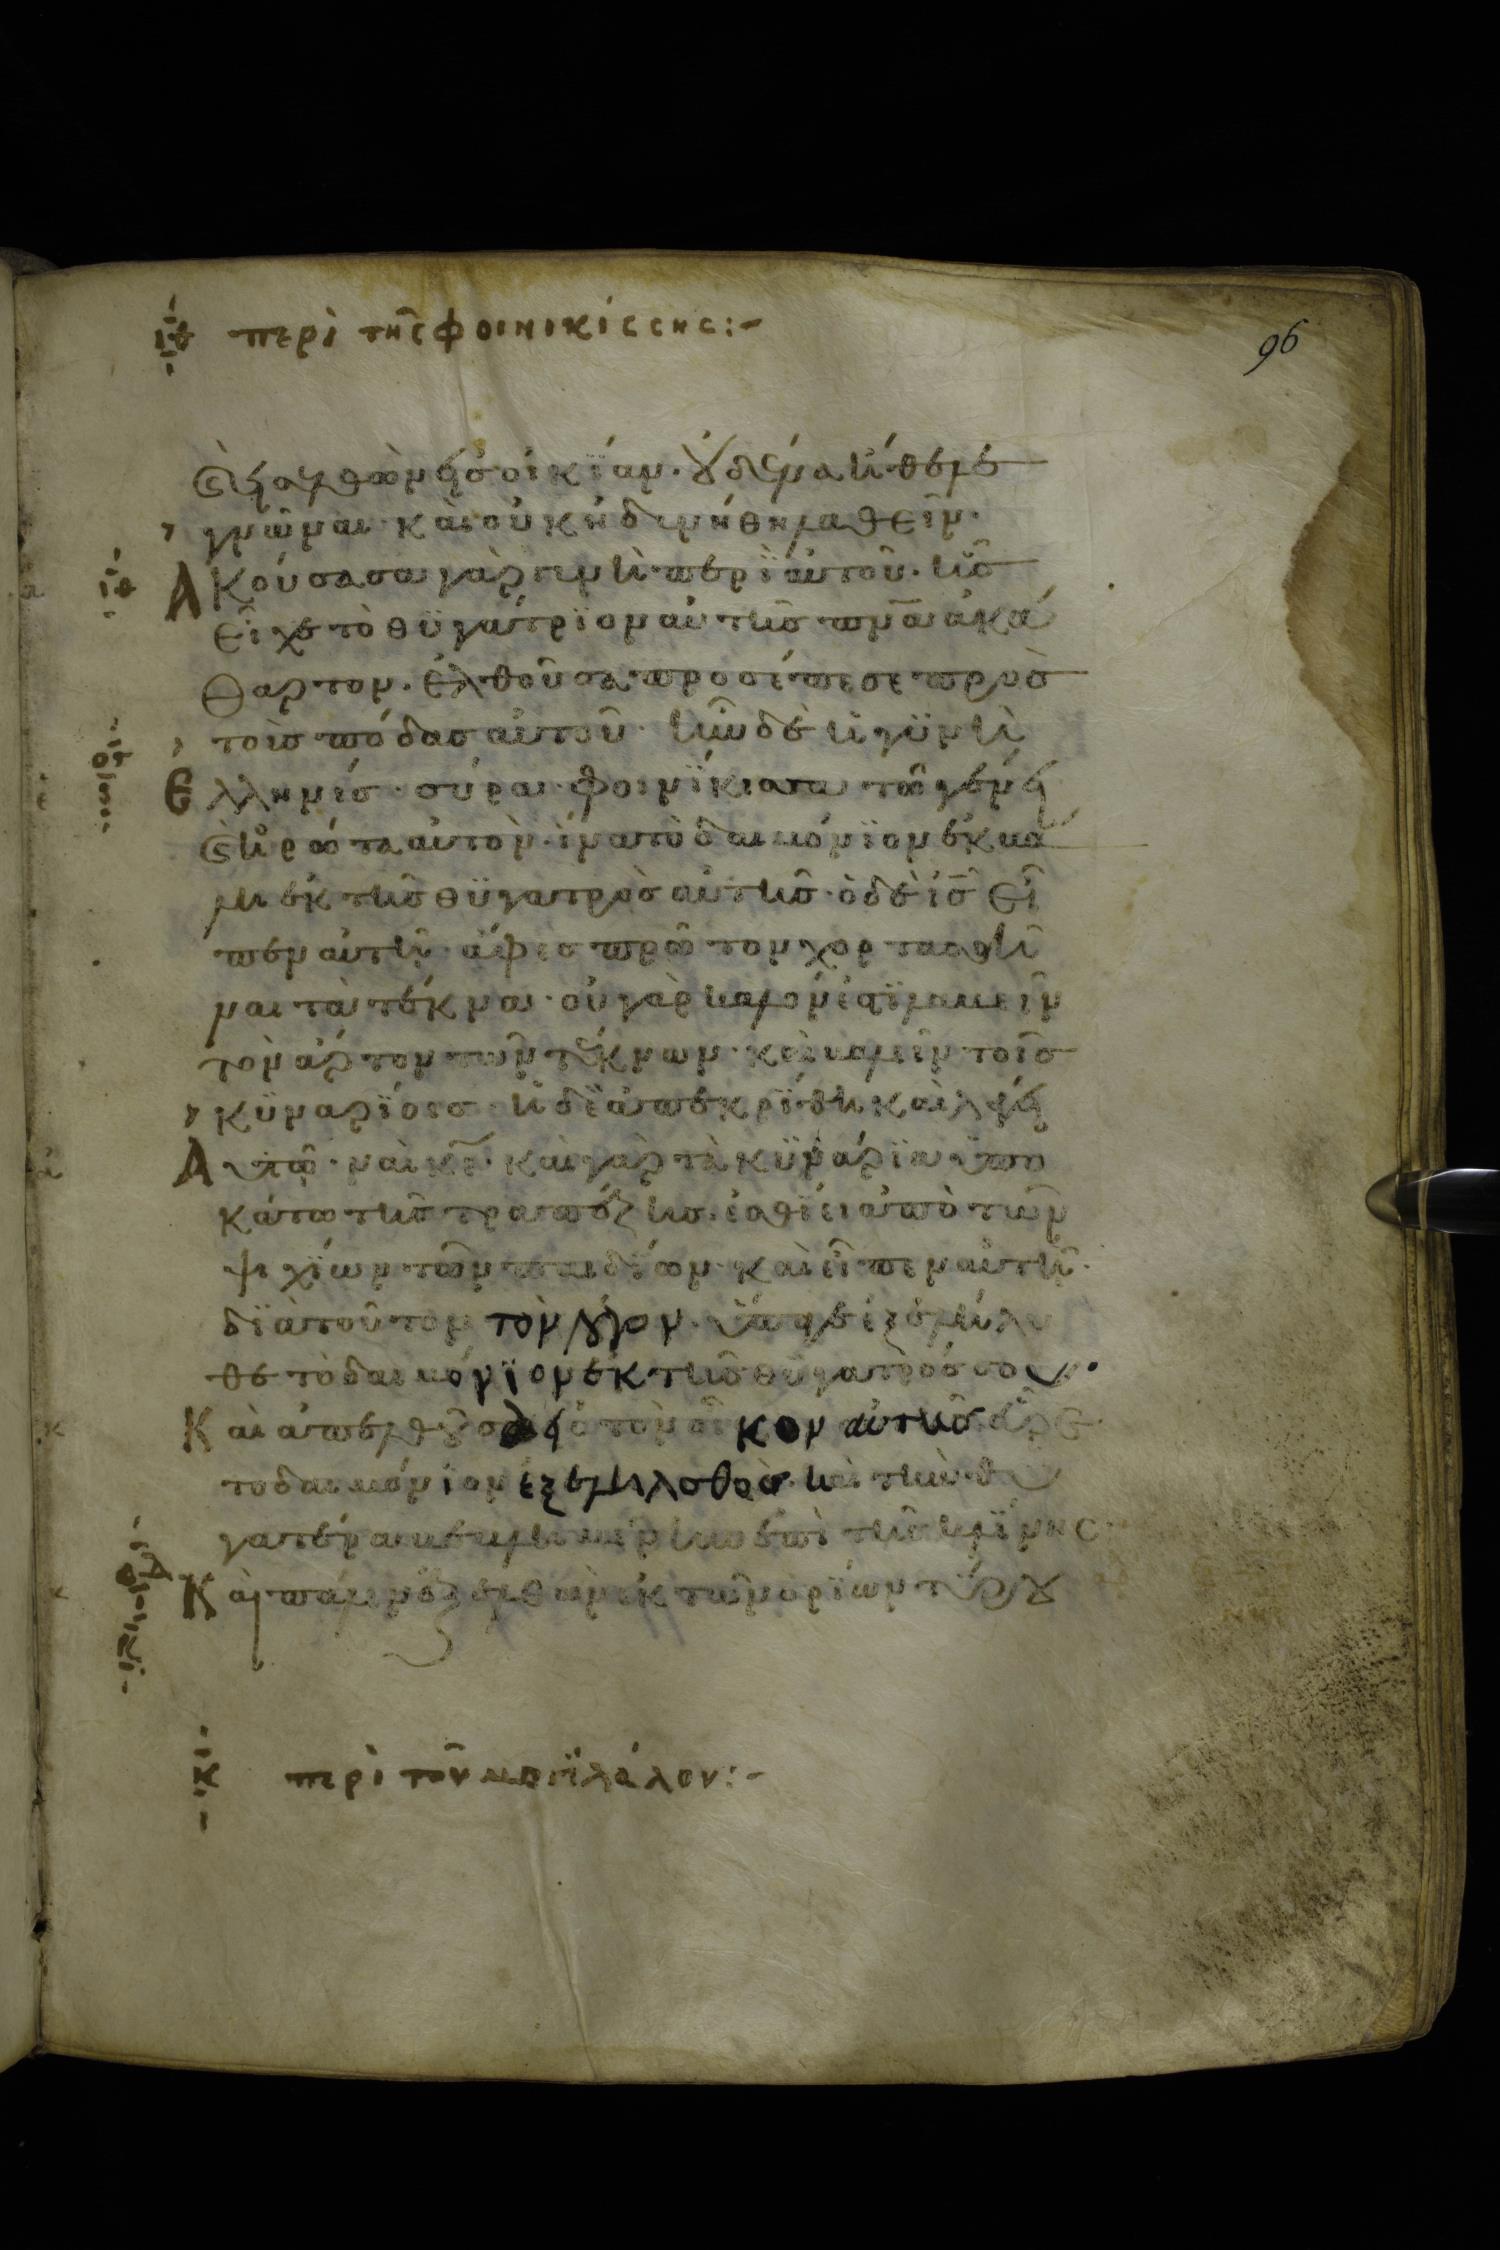 ιθ περὶ τῆς φοινικίσσης:-
96
ϛ εἰσελθὼν εἰς οἰκϊαν. οὐδένα ἤθελε
γνῶναι· καὶ οὐκ ἠδυνήθη λαθεῖν.
Ακούσασα γὰρ γυνὴ περῒ αὐτοῦ. ἧς
εἶχε τὸ θϋγάτρϊον αὐτῆς πνᾶ ἀκά
θαρτον. ἐλθοῦσα προσέπεσε πρὸς
τοὺς πόδας αὐτοῦ. ἦν δὲ ἡ γϋνὴ
Ελληνίς. σύρα φοινϊκισσα τῶ γένει
ϛ ἠρώτα αὐτὸν. ἵνα τὸ δαιμόνϊον ἐκβά
λη ἐκ τῆς θϋγατρὸς αὐτῆς. ὁ δὲ ἰς̅ εἶ
πεν αὐτῆ. ἄφες πρῶτον χορτασθῆ
ναι τὰ τέκνα. οὐ γὰρ καλόν ἐστϊ λαβεῖν
τὸν ἄρτον τῶν τέκνων. καὶ βαλεῖν τοῖς
κϋναρϊοις. ἡ δὲ ἀπεκρϊθη καὶ λέγει
Αὐτῶ. ναὶ κε̅. καὶ γὰρ τὰ κϋνάρϊα ὑπο
κάτω τῆς τραπέζης. ἐσθϊει ἀπὸ τῶν
ψιχϊων τῶν παιδϊων. καὶ εἶπεν αὐτῆ.
δϊὰ τοῦτον τὸν λόγον. ὕπαγε ἐξελήλυ
θε τὸ δαιμόνϊον ἐκ τῆς θϋγατρός σου.
Καὶ ἀπελθοῦσα εἰς τὸν οἶκον αὐτῆς εὗρε
το δαιμόνιον ἐξεληλυθὸς. καὶ τὴν θυ
γατέρα βεβλημένην ἐπὶ τῆς κλϊνης.
Καὶ πάλιν ἐξελθὼν ἐκ τῶν ὁρϊων τύρου
κ περὶ τοῦ μογϊλάλου:-